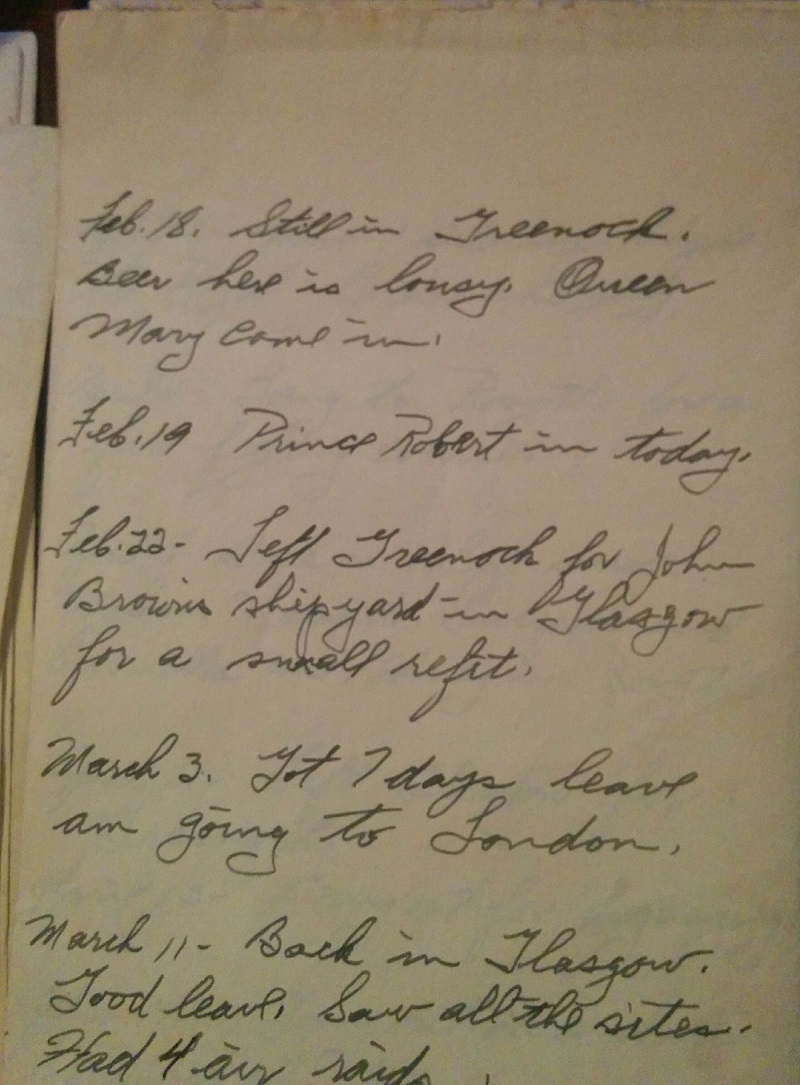 Feb. 18. Still in Greenock.
Beer here is lousy. Queen
Mary came in.
Feb. 19 Prince Robert in today.
Feb. 22- Left Greenock for John
Browns shipyard in Glasgow
for a small refit.
March 3. Got 7 days leave
am going to London.
March 11- Back in Glasgow.
Good leave. Saw all the sites.
Had 4 air raids